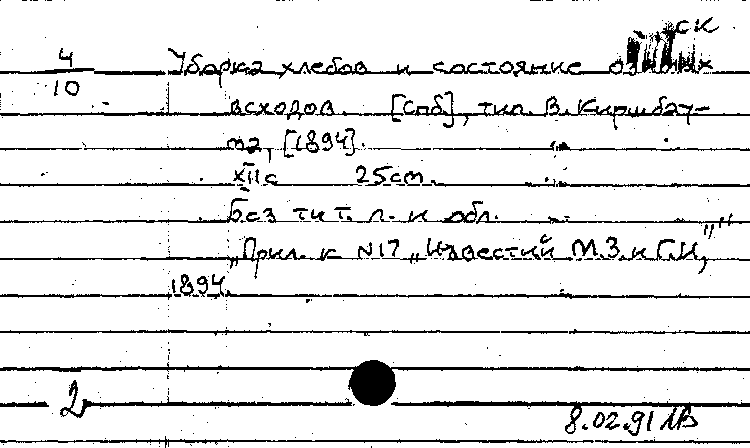 СК
4
10
Уборка хлебов и состояние озимых
всходов. [Спб], тип. В. Киршбау-
ма, [1894].
XII с 25 cm.
Без тит. л. и обл.
„Прил. к N17 „Известий М.З. и Г.И,""
1894.
2
8.02.91 ЛВ